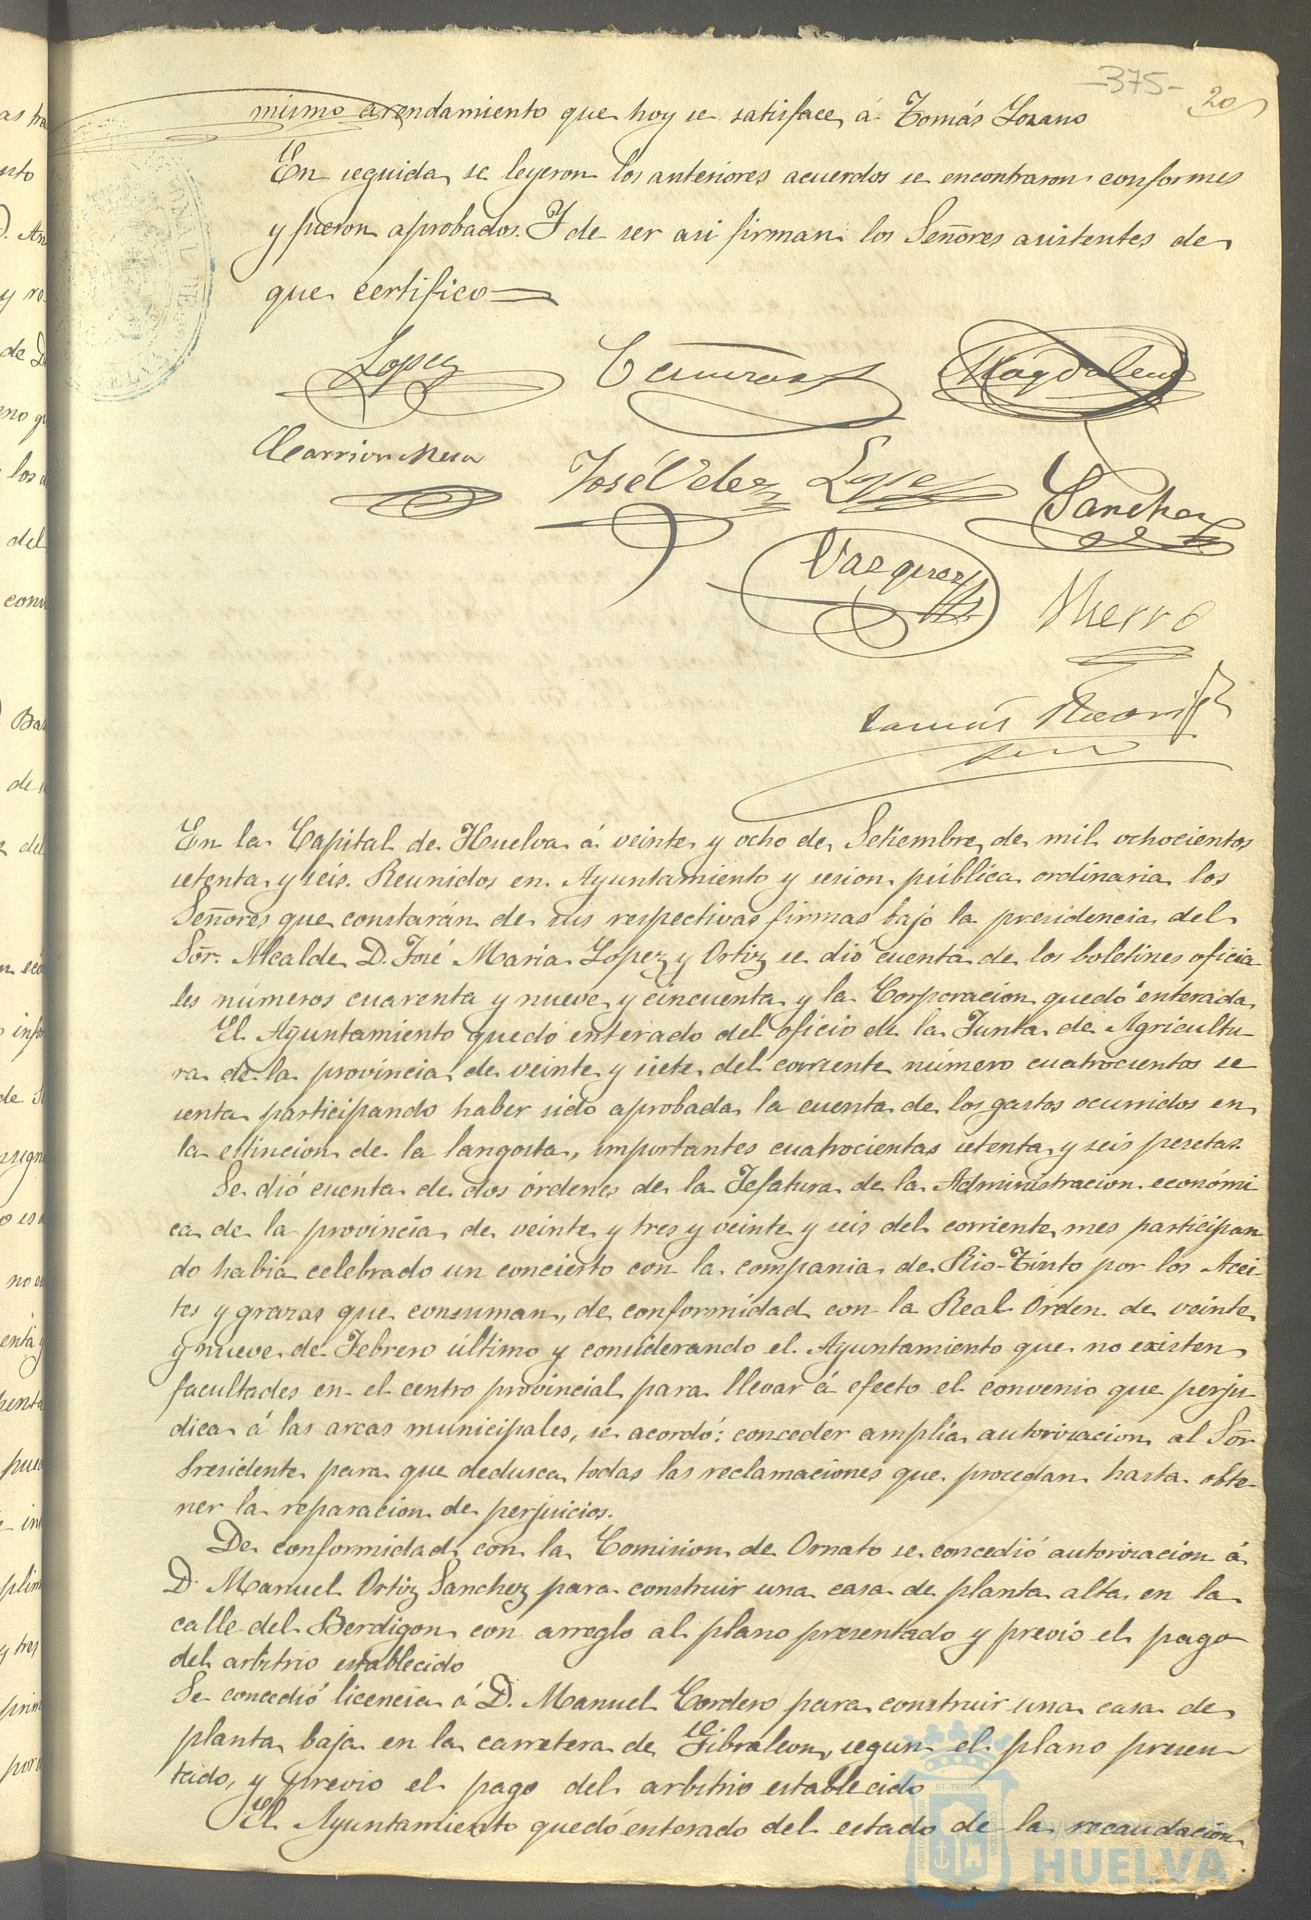 -375-
20
mismo arendamiento que hoy se satisface á Tomás Lozano
En seguida se leyeron los anteriores acuerdos se encontraron conformes
y fueron aprobados. Y de ser asi firman los Señores asistentes de
que certifico
Lopez
Magdalena
Carrion Mesa
José Velez
Lopez
Sanchez
Vazquez
Hierro
En la Capital de Huelva á veinte y ocho de Setiembre de mil ochocientos
setenta y seis. Reunidos en Ayuntamiento y sesion pública ordinaria los
Señores que constarán de sus respectivas firmas bajo la presidencia del
Sõr. Alcalde D. José Maria Lopez y Ortiz se dió cuenta de los boletines oficia
les números cuarenta y nueve y cincuenta y la Corporacion quedó enterada
El Ayuntamiento quedó enterado del oficio de la Junta de Agricultu-
ra de la provincia de veinte y siete del corriente número cuatrocientos se
senta participando haber sido aprobada la cuenta de los gastos ocurridos en
la estincion de la langosta, importantes cuatrocientas setenta y seis pesetas.
Se dió cuenta de dos órdenes de la Jefatura de la Administracion económi
ca de la provincia de veinte y tres y veinte y seis del corriente mes participan
do habia celebrado un concierto con la compania de Rio-Tinto por los Acei-
tes y grazas que consuman, de conformidad con la Real Orden de veinte
y nueve de Febrero último y considerando el Ayuntamiento que no existen
facultades en el centro provincial para llevar á efecto el convenio que perju-
dica á las arcas municipales, se acordó: conceder amplia autorizacion al Sõr
Presidente para que deduzca todas las reclamaciones que procedan hasta obte-
ner la reparacion de perjuicios.
De conformidad con la Comision de Ornato se concedió autorizacion á
D. Manuel Ortiz Sanchez para construir una casa de planta alta en la
calle del Berdigon con arreglo al plano presentado y previo el pago
del arbitrio establecido
Se concedió licencia á D. Manuel Cordero para construir una casa de
planta baja en la carretera de Gibraleon, segun el plano presen
tado, y previo el pago del arbitrio establecido
El Ayuntamiento quedó enterado del estado de la recaudacion
HUELVA